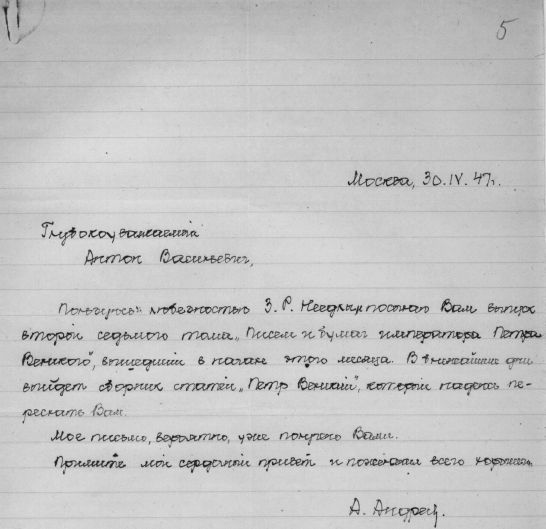 5
Москва, 30.IV.47г.
Глубокоуважаемый
Антон Васильевич,
Пользуюсь любезностью З. Р. посылаю Вам выпуск
второй седьмого тома „Писем и бумаг императора Петра
Великого", вышедший в начале этого месяца. В ближайшие дни
выйдет сборник статей „Петр Великий", который надеюсь пе-
реслать Вам.
Мое письмо, вероятно, уже получено Вами.
Примите мой сердечный привет и пожелания всего хорошего.
А. Андреев.